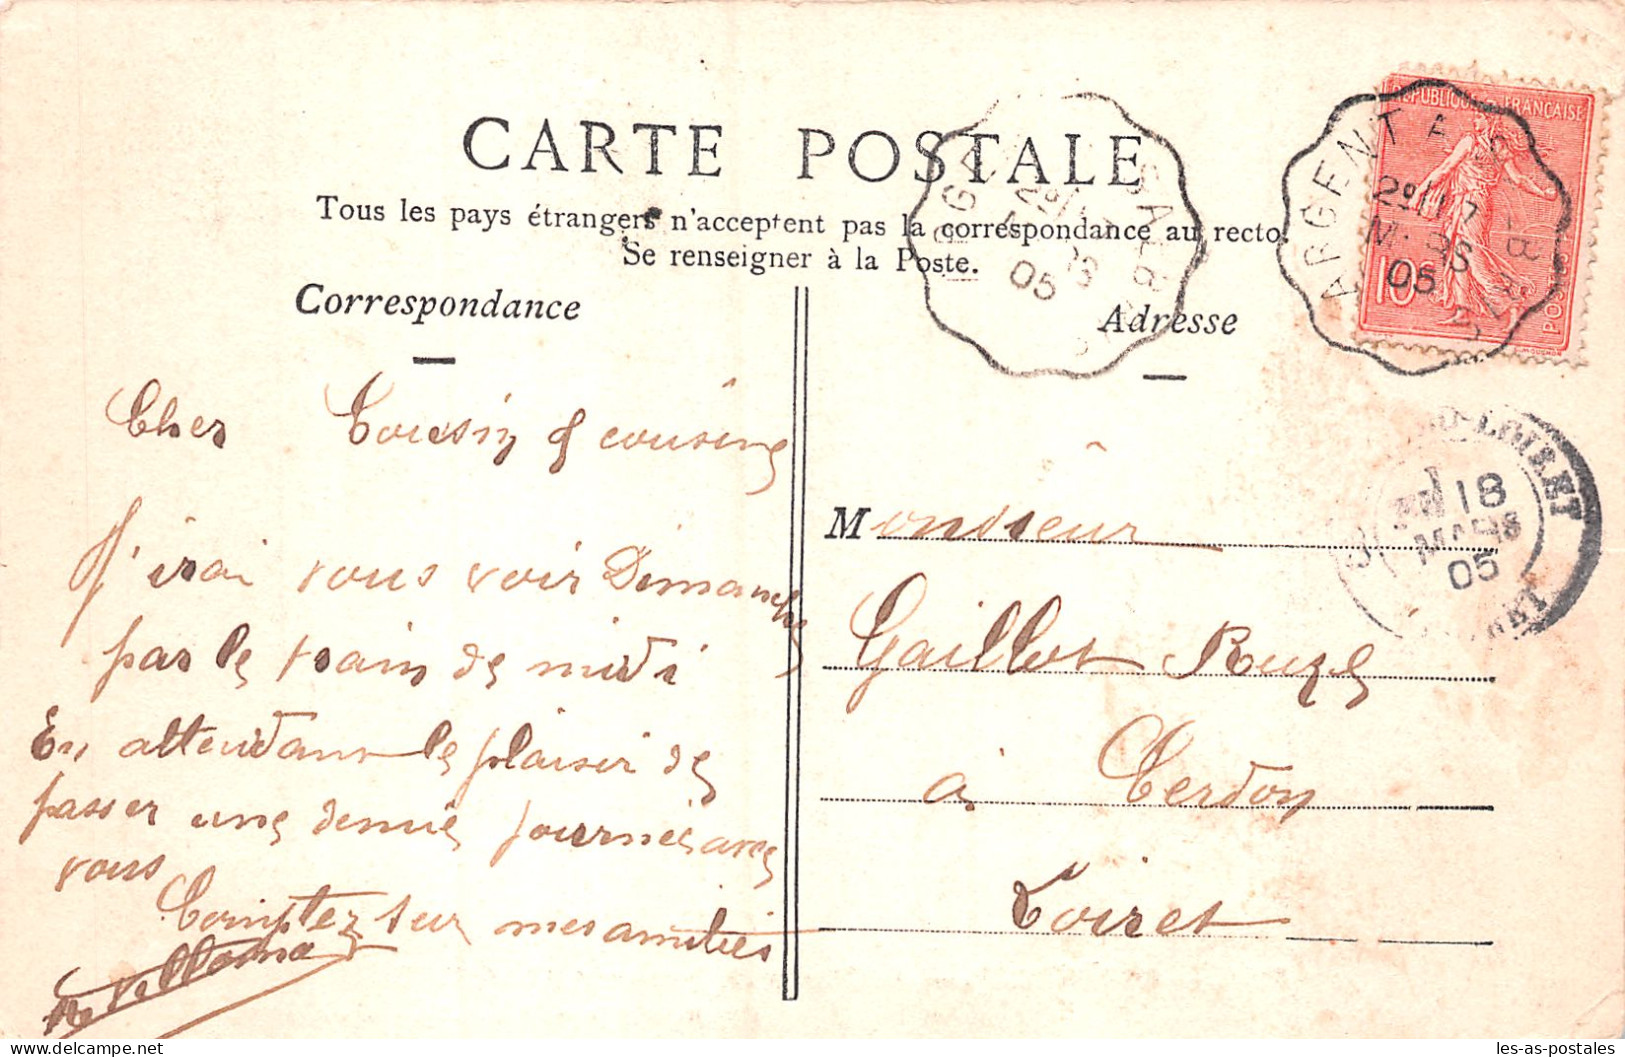 CARTE POSTALE
Tous les pays étrangers n'acceptent pas la correspondance au recto.
Se renseigner à la Poste.
Correspondance
Adresse
RÉPUBLIQUE FRANÇAISE
10c
POSTES
ARGENT A
2º 17
MARS
05
05
LOIRET
18
MARS
05
Cher Cousin & cousine
J'irai vous voir Dimanche
par le train de midi
En attendant le plaisir de
passer une demie journée avec
vous
Comptez sur mes amitiés
Monsieur
Gaillot Ruzé
à Cerdon
Loiret
les-as-postales